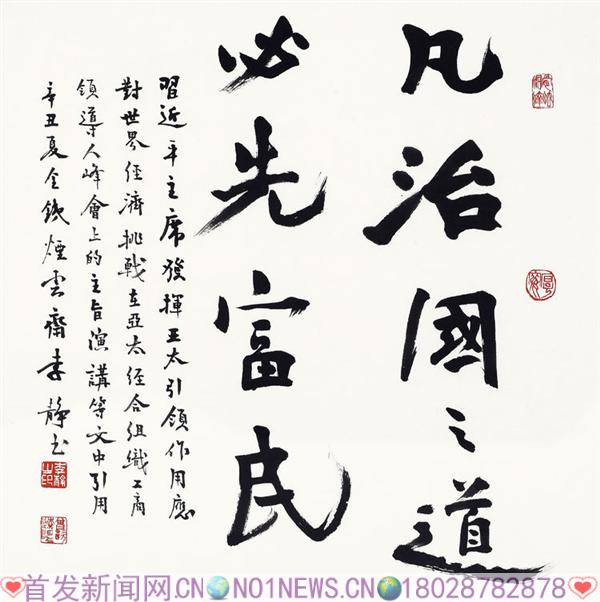 凡治國之道
必先富民
習近平主席發揮亞太引領作用應
對世界經濟挑戰在亞太經合組織工商
領導人峰會上的主旨演講等文中引用
辛丑夏全鐵煙雲齋李靜書
首发新闻网.CN NO1NEWS.CN 18028782878